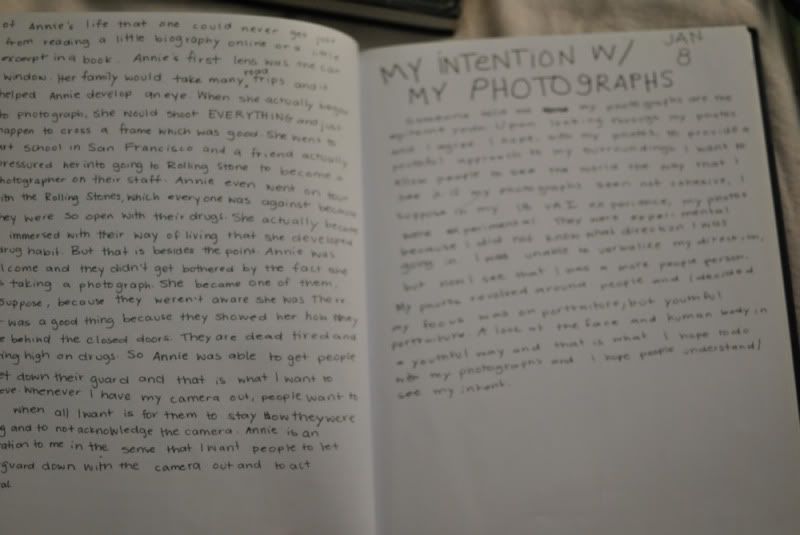 of Annie's life that one could never get just
from reading a little biography online or a little
excerpt in a book. Annie's first lens was the car
window. Her family would take many road trips and it
helped Annie develop an eye. When she actually began
to photograph, she would shoot EVERYTHING and just
happen to cross a frame which was good. She went to
art school in San Francisco and a friend actually
pressured her into going to Rolling Stone to become a
photographer on their staff. Annie even went on tour
with the Rolling Stones, which everyone was against because
they were so open with their drugs. She actually became
immersed with their way of living that she developed
drug habit. But that is besides the point. Annie was
lcome and they didn't get bothered by the fact she
s taking a photograph. She became one of them.
suppose, because they weren't aware she was there
was a good thing because they showed her how they
e behind the closed doors. They are dead tired and
ing high on drugs. So Annie was able to get people
et down their guard and that is what I want to
eve. Whenever I have my camera out, people want to
when all I want is for them to stay how they were
g and to not acknowledge the camera. Annie is an
ration to me in the sense that I want people to let
guard down with the camera out and to act
al.
MY INTENTION W/ JAN
MY PHOTOGRAPHS 8
Someone told me my photographs are the
youth. Upon looking through my photos
and I agree. I hope, with my photos, to provide a
youthful approach to my surroundings. I want to
allow people to see the world the way that I
see it. If my photographs seem not cohesive, I
suppose in my IB VAI experience, my photos
were experimental. They were experimental
because I did not know what direction I was
going in. I was unable to verbalize my direction,
but now I see that I was a more people person.
My photos revolved around people and I decided
my focus was on portraiture, but youthful
portraiture. A look at the face and human body in
a youthful way and that is what I hope to do
with my photographs and I hope people understand/
see my intent.